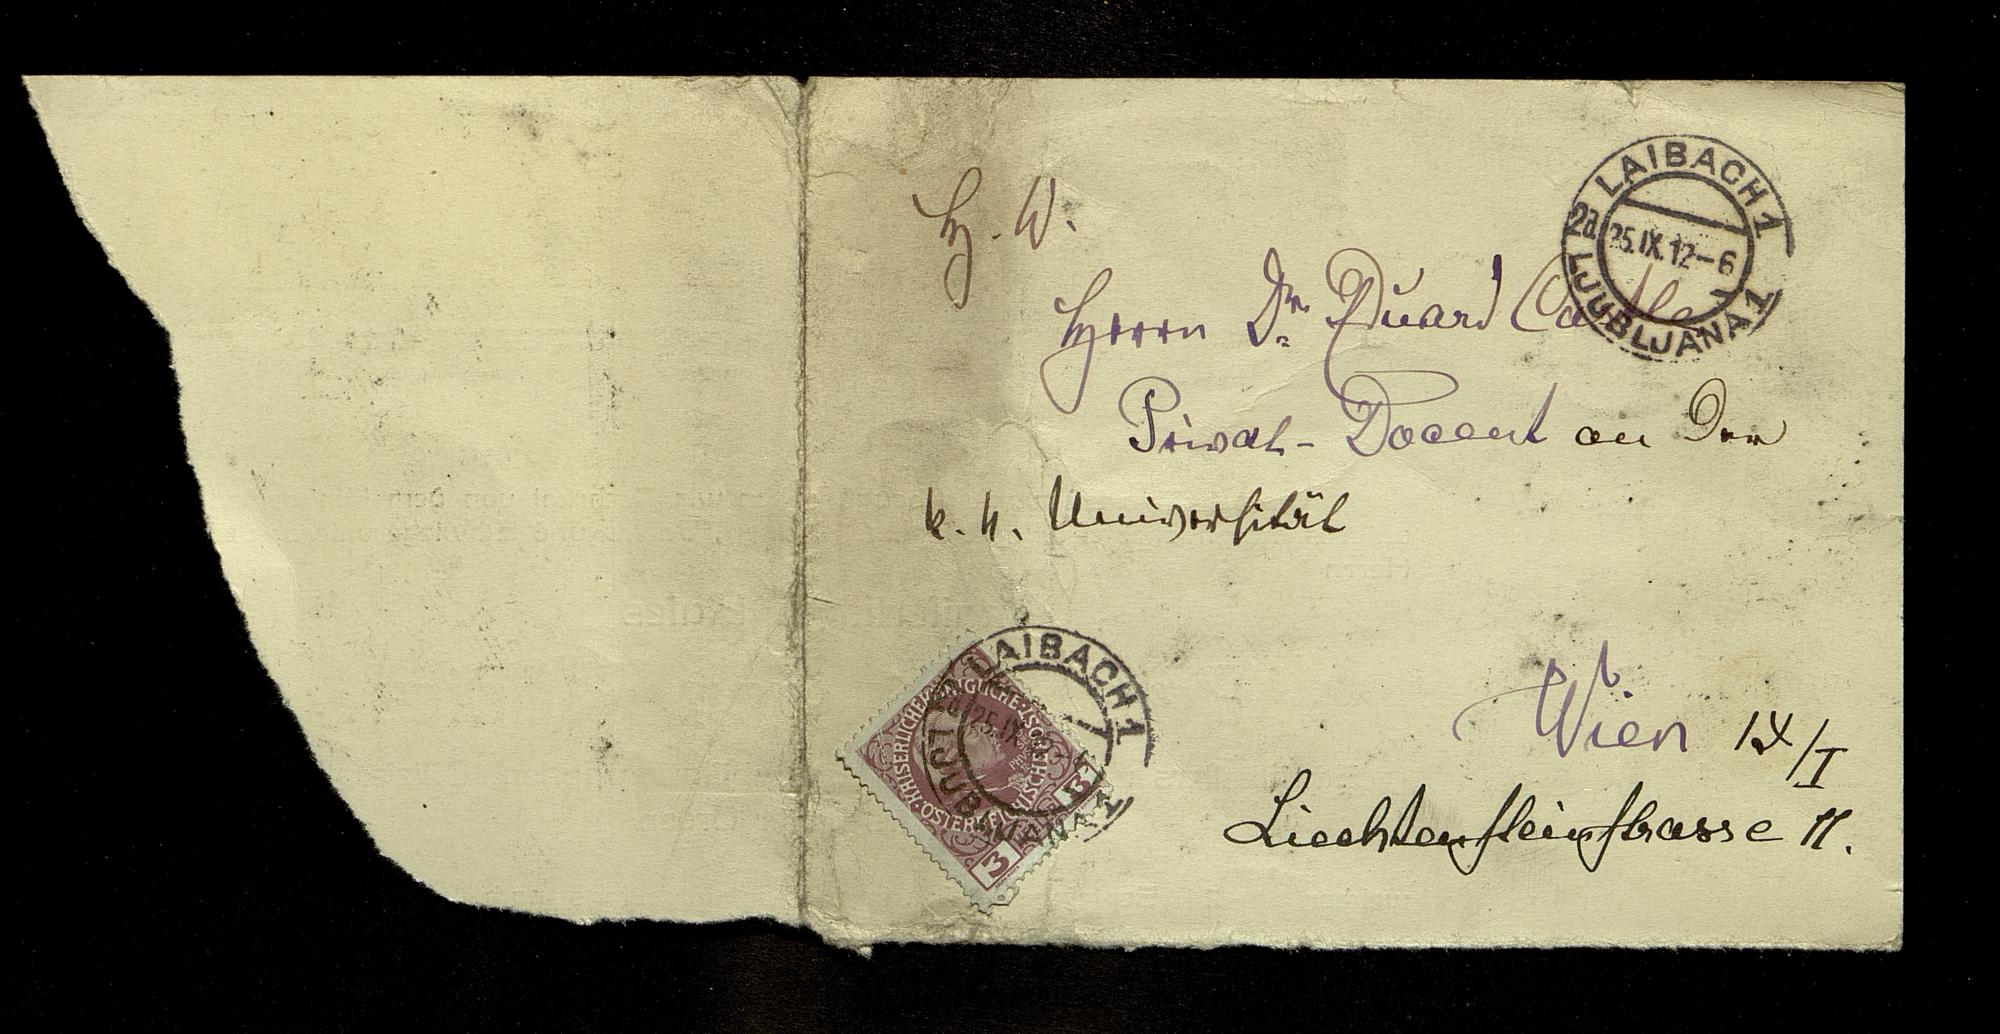 H. W.
Herrn Dr. Eduard Castle
Privat-Docent an der
k. k. Universität
Wien IX/I
Liechtensteinstrasse 11.
LAIBACH 1
2d 25.IX.12-6
LJUBLJANA 1
LAIBACH 1
2d 25.IX
LJUBLJANA 1
KAISERLICHE KÖNIGLICHE ÖSTERREICHISCHE POST
3 3